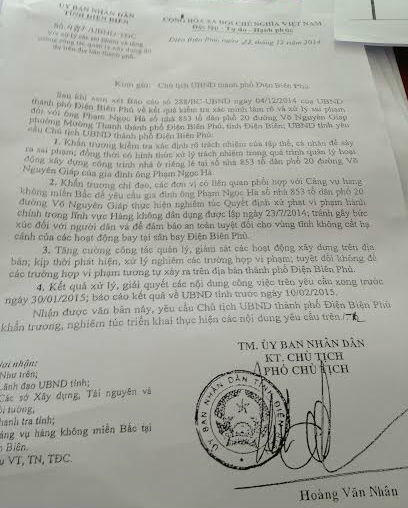 ỦY BAN NHÂN DÂN
TỈNH ĐIỆN BIÊN
CỘNG HÒA XÃ HỘI CHỦ NGHĨA VIỆT NAM
Độc lập - Tự do - Hạnh phúc
Số: /UBND-TĐC
Điện Biên Phủ, ngày 23 tháng 12 năm 2014
V/v xử lý các sai phạm và tăng
cường công tác quản lý xây dựng đô
thị trên địa bàn thành phố.
Kính gửi: Chủ tịch UBND thành phố Điện Biên Phủ.
Sau khi xem xét Báo cáo số 288/BC-UBND ngày 04/12/2014 của UBND
thành phố Điện Biên Phủ về kết quả kiểm tra xác minh làm rõ và xử lý sai phạm
đối với ông Phạm Ngọc Hà số nhà 853 tổ dân phố 20 đường Võ Nguyên Giáp
phường Mường Thanh thành phố Điện Biên Phủ, tỉnh Điện Biên; UBND tỉnh yêu
cầu Chủ tịch UBND thành phố Điện Biên Phủ:
1. Khẩn trương kiểm tra xác định rõ trách nhiệm của tập thể, cá nhân để xảy
ra sai phạm; đồng thời có hình thức xử lý trách nhiệm trong quá trình quản lý hoạt
động xây dựng công trình nhà ở riêng lẻ tại số nhà 853 tổ dân phố 20 đường Võ
Nguyên Giáp của gia đình ông Phạm Ngọc Hà.
2. Khẩn trương chỉ đạo, các đơn vị có liên quan phối hợp với Cảng vụ hàng
không miền Bắc để yêu cầu gia đình ông Phạm Ngọc Hà số nhà 853 tổ dân phố 20
đường Võ Nguyên Giáp thực hiện nghiêm túc Quyết định xử phạt vi phạm hành
chính trong lĩnh vực Hàng không dân dụng được lập ngày 23/7/2014; tránh gây bức
xúc đối với người dân và để đảm bảo an toàn tuyệt đối cho vùng tĩnh không cất hạ
cánh của các hoạt động bay tại sân bay Điện Biên Phủ.
3. Tăng cường công tác quản lý, giám sát các hoạt động xây dựng trên địa
bàn; kịp thời phát hiện, xử lý nghiêm các trường hợp vi phạm; tuyệt đối không để
các trường hợp vi phạm tương tự xảy ra trên địa bàn thành phố Điện Biên Phủ.
4. Kết quả xử lý, giải quyết các nội dung công việc trên yêu cầu xong trước
ngày 30/01/2015; báo cáo kết quả về UBND tỉnh trước ngày 10/02/2015.
Nhận được văn bản này, yêu cầu Chủ tịch UBND thành phố Điện Biên Phủ
khẩn trương, nghiêm túc triển khai thực hiện các nội dung yêu cầu trên./.
Nơi nhận:
Như trên;
Lãnh đạo UBND tỉnh;
Các sở Xây dựng, Tài nguyên và
ôi trường;
hanh tra tỉnh;
ảng vụ hàng không miền Bắc tại
n Biên.
u VT, TN, TĐC.
TM. ỦY BAN NHÂN DÂN
KT. CHỦ TỊCH
PHÓ CHỦ TỊCH
ỦY BAN NHÂN DÂN
Hoàng Văn Nhân